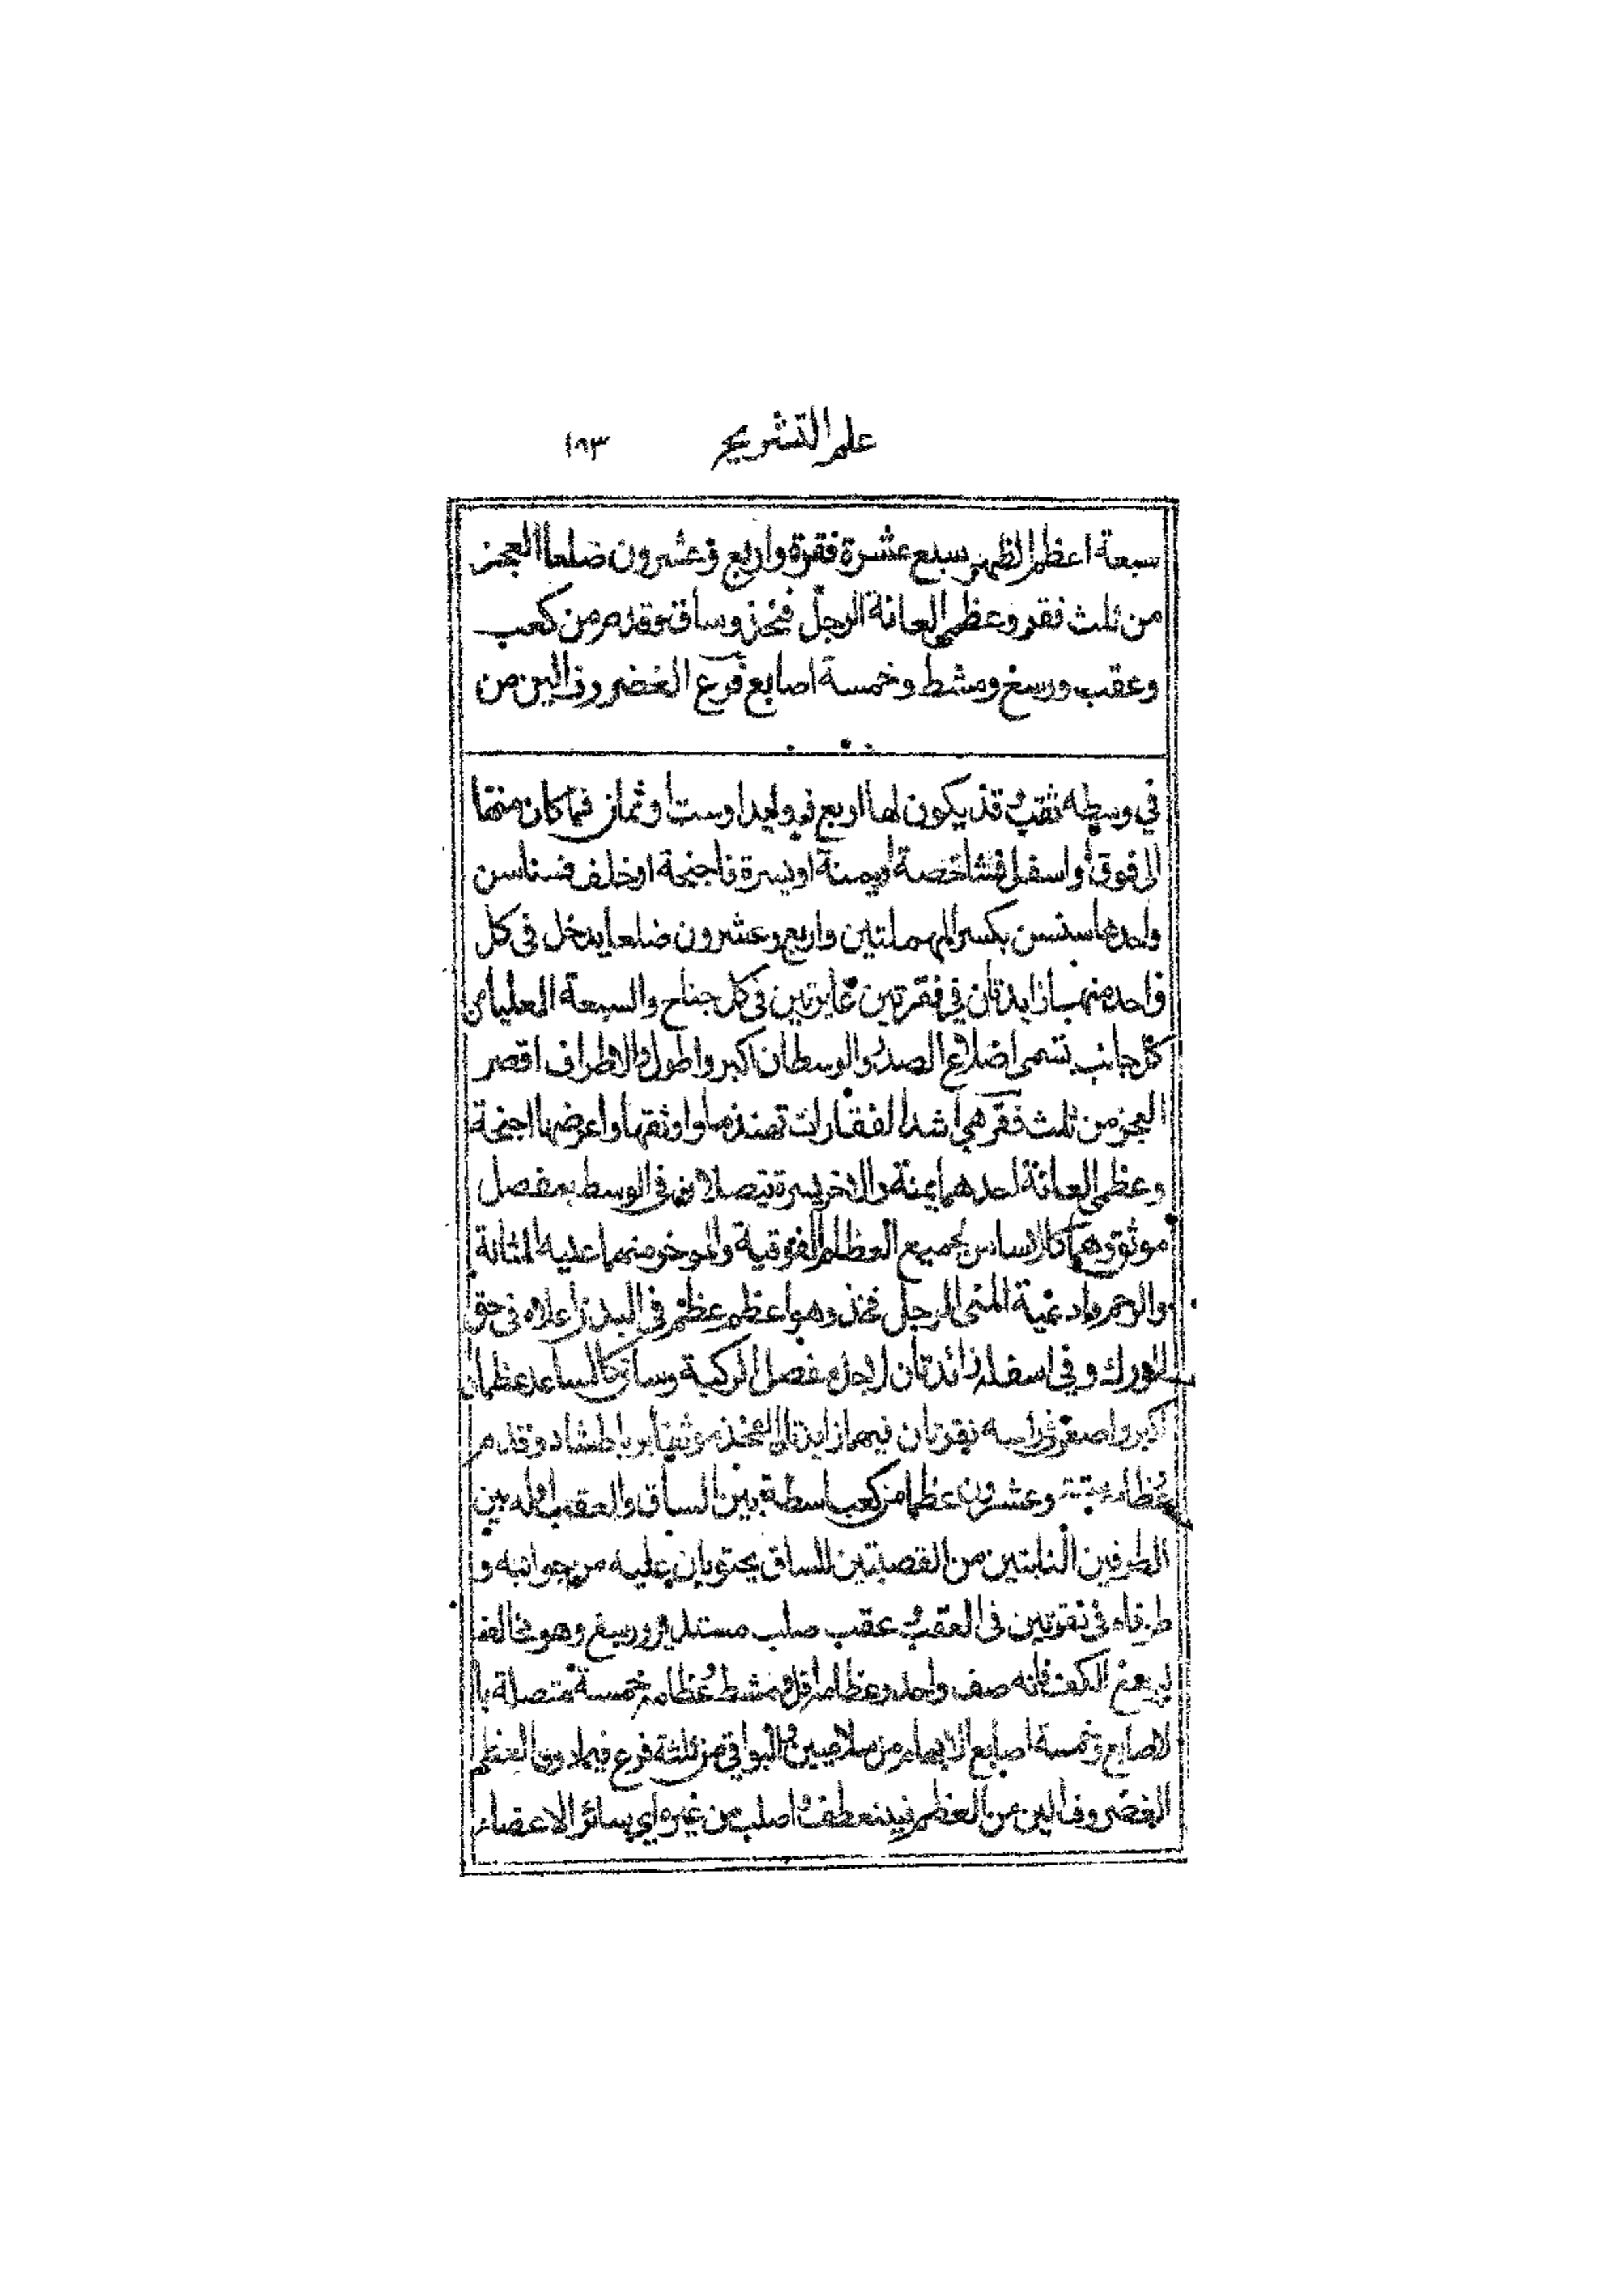 علم التشريح ١٨٣
سبعة اعظم الظهر سبع عشرة فقرة واربع وعشرون ضلعا العجز
من ثلث فقر وعظمى العانة الرجل فخذ وساق وقدم من كعب
وعقب ورسغ ومشط وخمسة اصابع فرع الغضروف الين من
في وسطه ثقب قد يكون لها اربع زوايد او ستا وثمان فما كان منها
الى فوق واسفل فشاخصة او يمنة او يسرة فاجنحة او خلف فسناسن
واحدها سنسن بكسر المهملتين واربع وعشرون ضلعا يدخل فى كل
واحد منها زايدتان في فقرتين غايرتين فى كل جناح والسبعة العليا من
كل جانب تسمى اضلاع الصدر والوسطان اكبر واطول والاطراف اقصر
العجز من ثلث فقر هي اشد الفقارات تهندما واوثقها واعرضها اجنحة
وعظمى العانة احدهما يمنة والاخر يسرة يتصلان فى الوسط بمفصل
موثق وهما كالاساس لجميع العظام الفوقية والموخر منهما عليه المثانة
والرحم واوعية المنى الرجل فخذ وهو اعظم عظم فى البدن اعلاه فى حق
الورك وفي اسفله زائدتان لاجل مفصل الركبة وساق كالساعد عظمان
اكبر واصغر فى راسه نقرتان فيهما زايدتا الفخذ موثقا برباط شاد وقدم
عظامه ستة وعشرون عظما من كعب واسطة بين الساق والعقب وله بين
الطرفين الناتئين من القصبتين للساق يحتويان عليه من جوانبه و
طرفاه فى نقرتين فى العقب وعقب صلب مستدير ورسغ وهو مخالف
لرسغ الكف فانه صف واحد وعظامه اقل ومشط عظامه خمسة متصلة با
لاصابع وخمسة اصابع الابهام من سلاميين والبواقي من ثلثة فرع فيما دون العظم
الغضروف الين من العظم فينعطف واصلب من غيره اي سائر الاعضاء